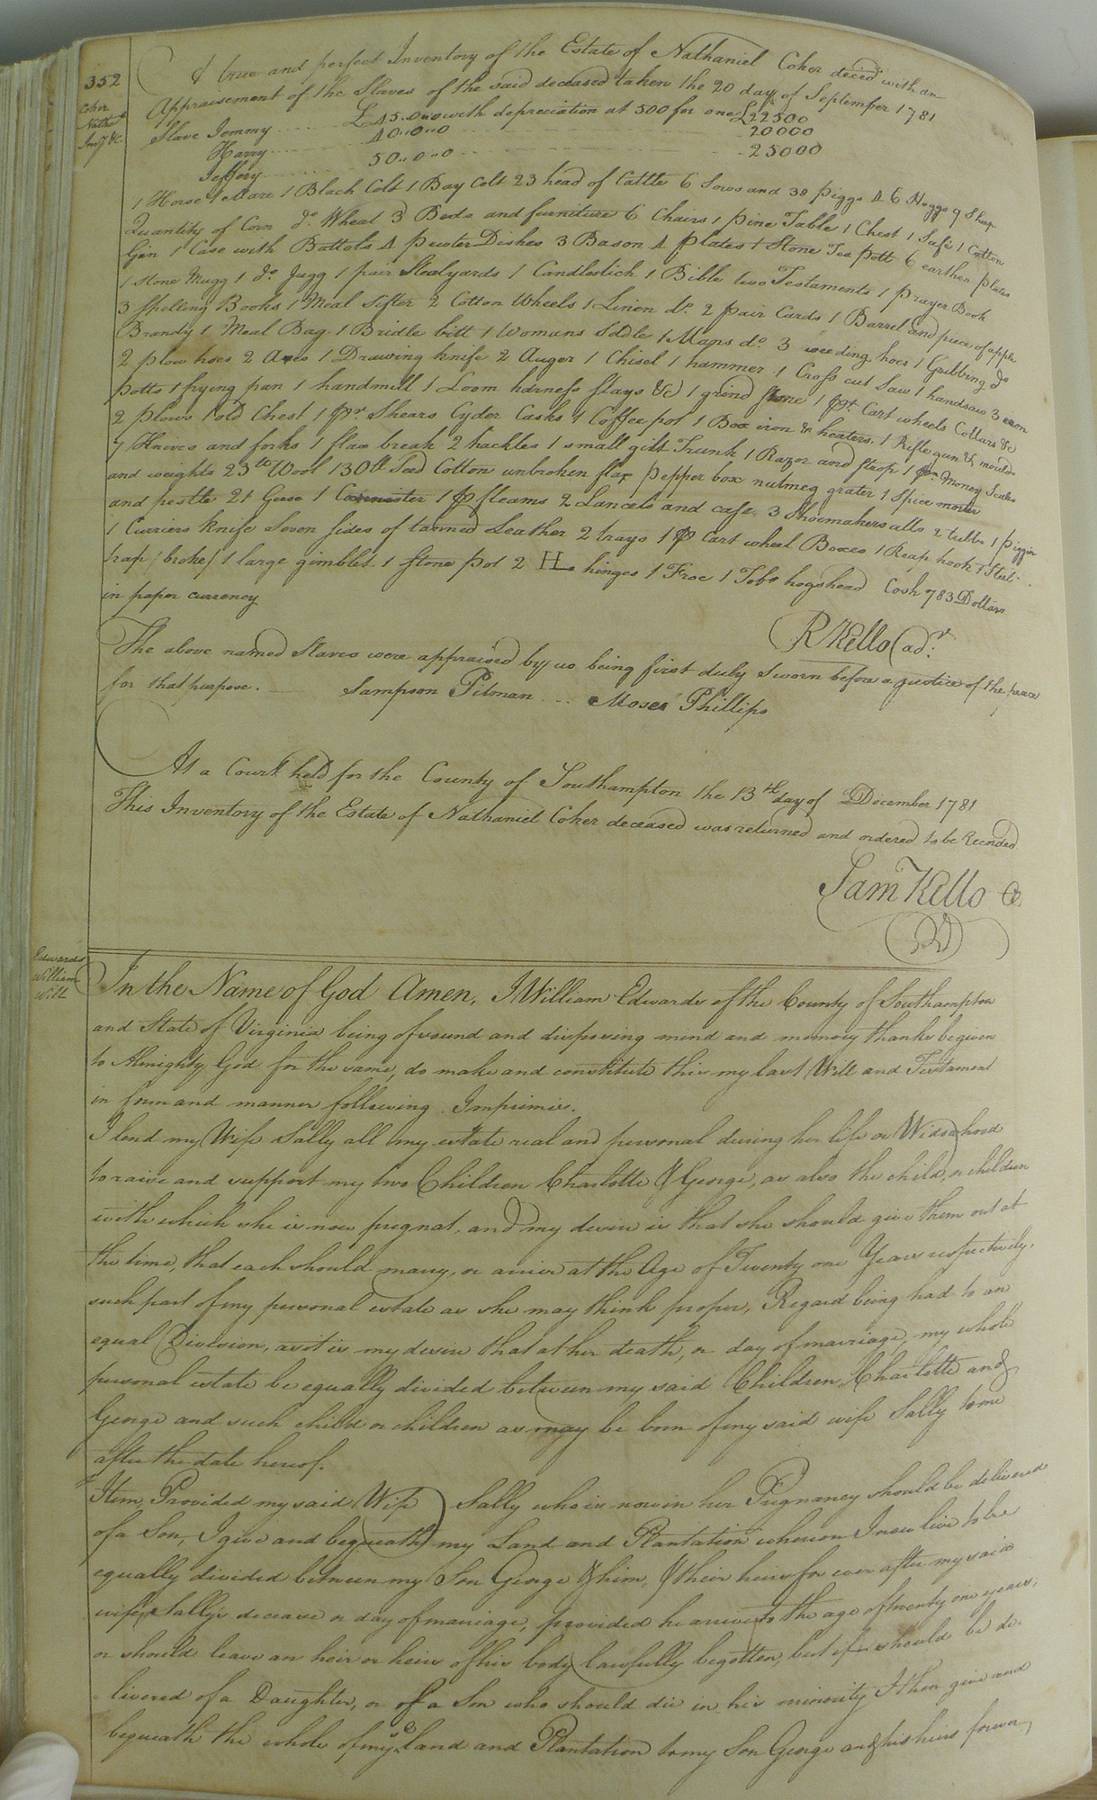 352
Coker
Nathl
Invy &c
A true and perfect Inventory of the Estate of Nathaniel Coker deced with an
Appraisement of the Slaves of the said deceased taken the 20 day of September 1781
Slave Jemmy ...... £45..0..0 with depreciation at 500 for one £22500
Harry ...... 40..0..0 ...... 20000
Jeffery ...... 50..0..0 ...... 25000
1 Horse 1 Mare 1 Black Colt 1 Bay Colt 23 head of Cattle 6 Sows and 38 piggs & 6 Hoggs 9 Sheep
Quantity of Corn do Wheat 3 Beds and furniture 6 Chairs 1 pine Table 1 Chest 1 Safe 1 Cotton
Gin 1 Case with Bottols 4 pewter Dishes 3 Bason 4 plates 1 Stone Tea pott 6 earthen plates
1 Stone Mugg 1 do Jugg 1 pair Steelyards 1 Candlestick 1 Bible two Testaments 1 prayer Book
3 Spelling Books 1 Meal Sifter 2 Cotton Wheels 1 Linen do 2 pair Cards 1 Barrel and piece of apple
Brandy 1 Meal Bag 1 Bridle bitt 1 Womans Sddle 1 Mans do 3 weeding hoes 1 Grubbing do
2 plow hoes 2 Axes 1 Drawing knife 2 Auger 1 Chisel 1 hammer 1 Cross cut Saw 1 handsaw 3 eron
potts 1 frying pan 1 handmill 1 Loom harness slays &c 1 grind stone 1 pr Cart wheels Collars &c
2 plows 1 old Chest 1 pr Shears Cyder Casks 1 Coffee pot 1 Box iron & heaters 1 Rifle gun & moulds
7 knives and forks 1 flax break 2 hackles 1 small gilt Trunk 1 Razor and strop 1 pr Money Scales
and weights 23 lb Wool 130 lb Seed Cotton unbroken flax pepper box nutmeg grater 1 Spice mortar
and pestle 21 Geese 1 Cannister 1 p fleams 2 Lancets and case 3 Shoemakers alls 2 tubbs 1 piggin
1 Curriers knife Seven sides of tanned Leather 2 trays 1 p Cart wheel Boxes 1 Reap hook 1 Steel
trap / broke / 1 large gimblet 1 stone pot 2 HL hinges 1 Froe 1 Tobo hogshead Cash 783 Dollars
in paper currency
R Kello adr
The above named Slaves were appraised by us being first duly Sworn before a justice of the peace
for that purpose. Sampson Pitman ... Moses Phillips
At a Court held for the County of Southampton the 13th day of December 1781
This Inventory of the Estate of Nathaniel Coker deceased was returned and ordered to be Recorded
Saml Kello C
Edwards
William
Will
In the Name of God Amen, I William Edwards of the County of Southampton
and State of Virginia being of sound and disposing mind and memory thanks be given
to Almighty God for the same, do make and constitute this my last Will and Testament
in form and manner following. Imprimis.
I lend my Wife Sally all my estate real and personal during her life or Widowhood
to raise and support my two Children Charlotte & George, as also the child, or children
with which she is now pregnat, and my desire is that she should give them out at
the time, that each should marry, or arrive at the Age of Twenty one Years respectively,
such part of my personal estate as she may think proper, Regard being had to an
equal Division, as it is my desire that at her death, or day of marriage, my whole
personal estate be equally divided between my said Children, Charlotte and
George and such child or children as may be born of my said wife Sally to me
after the date hereof.
Item, Provided my said Wife Sally who is now in her Pregnancy should be delivered
of a Son, I give and bequeath my Land and Plantation whereon I now live to be
equally divided between my Son George & him, & their heirs for ever after my said
wife Sally's decease or day of marriage, provided he arrive to the age of twenty one years,
or should leave an heir or heirs of his body lawfully begotten, but if she should be de
livered of a Daughter, or of a Son who should die in his minority I then give and
bequeath the whole of my sd land and Plantation to my Son George and his heirs forever,